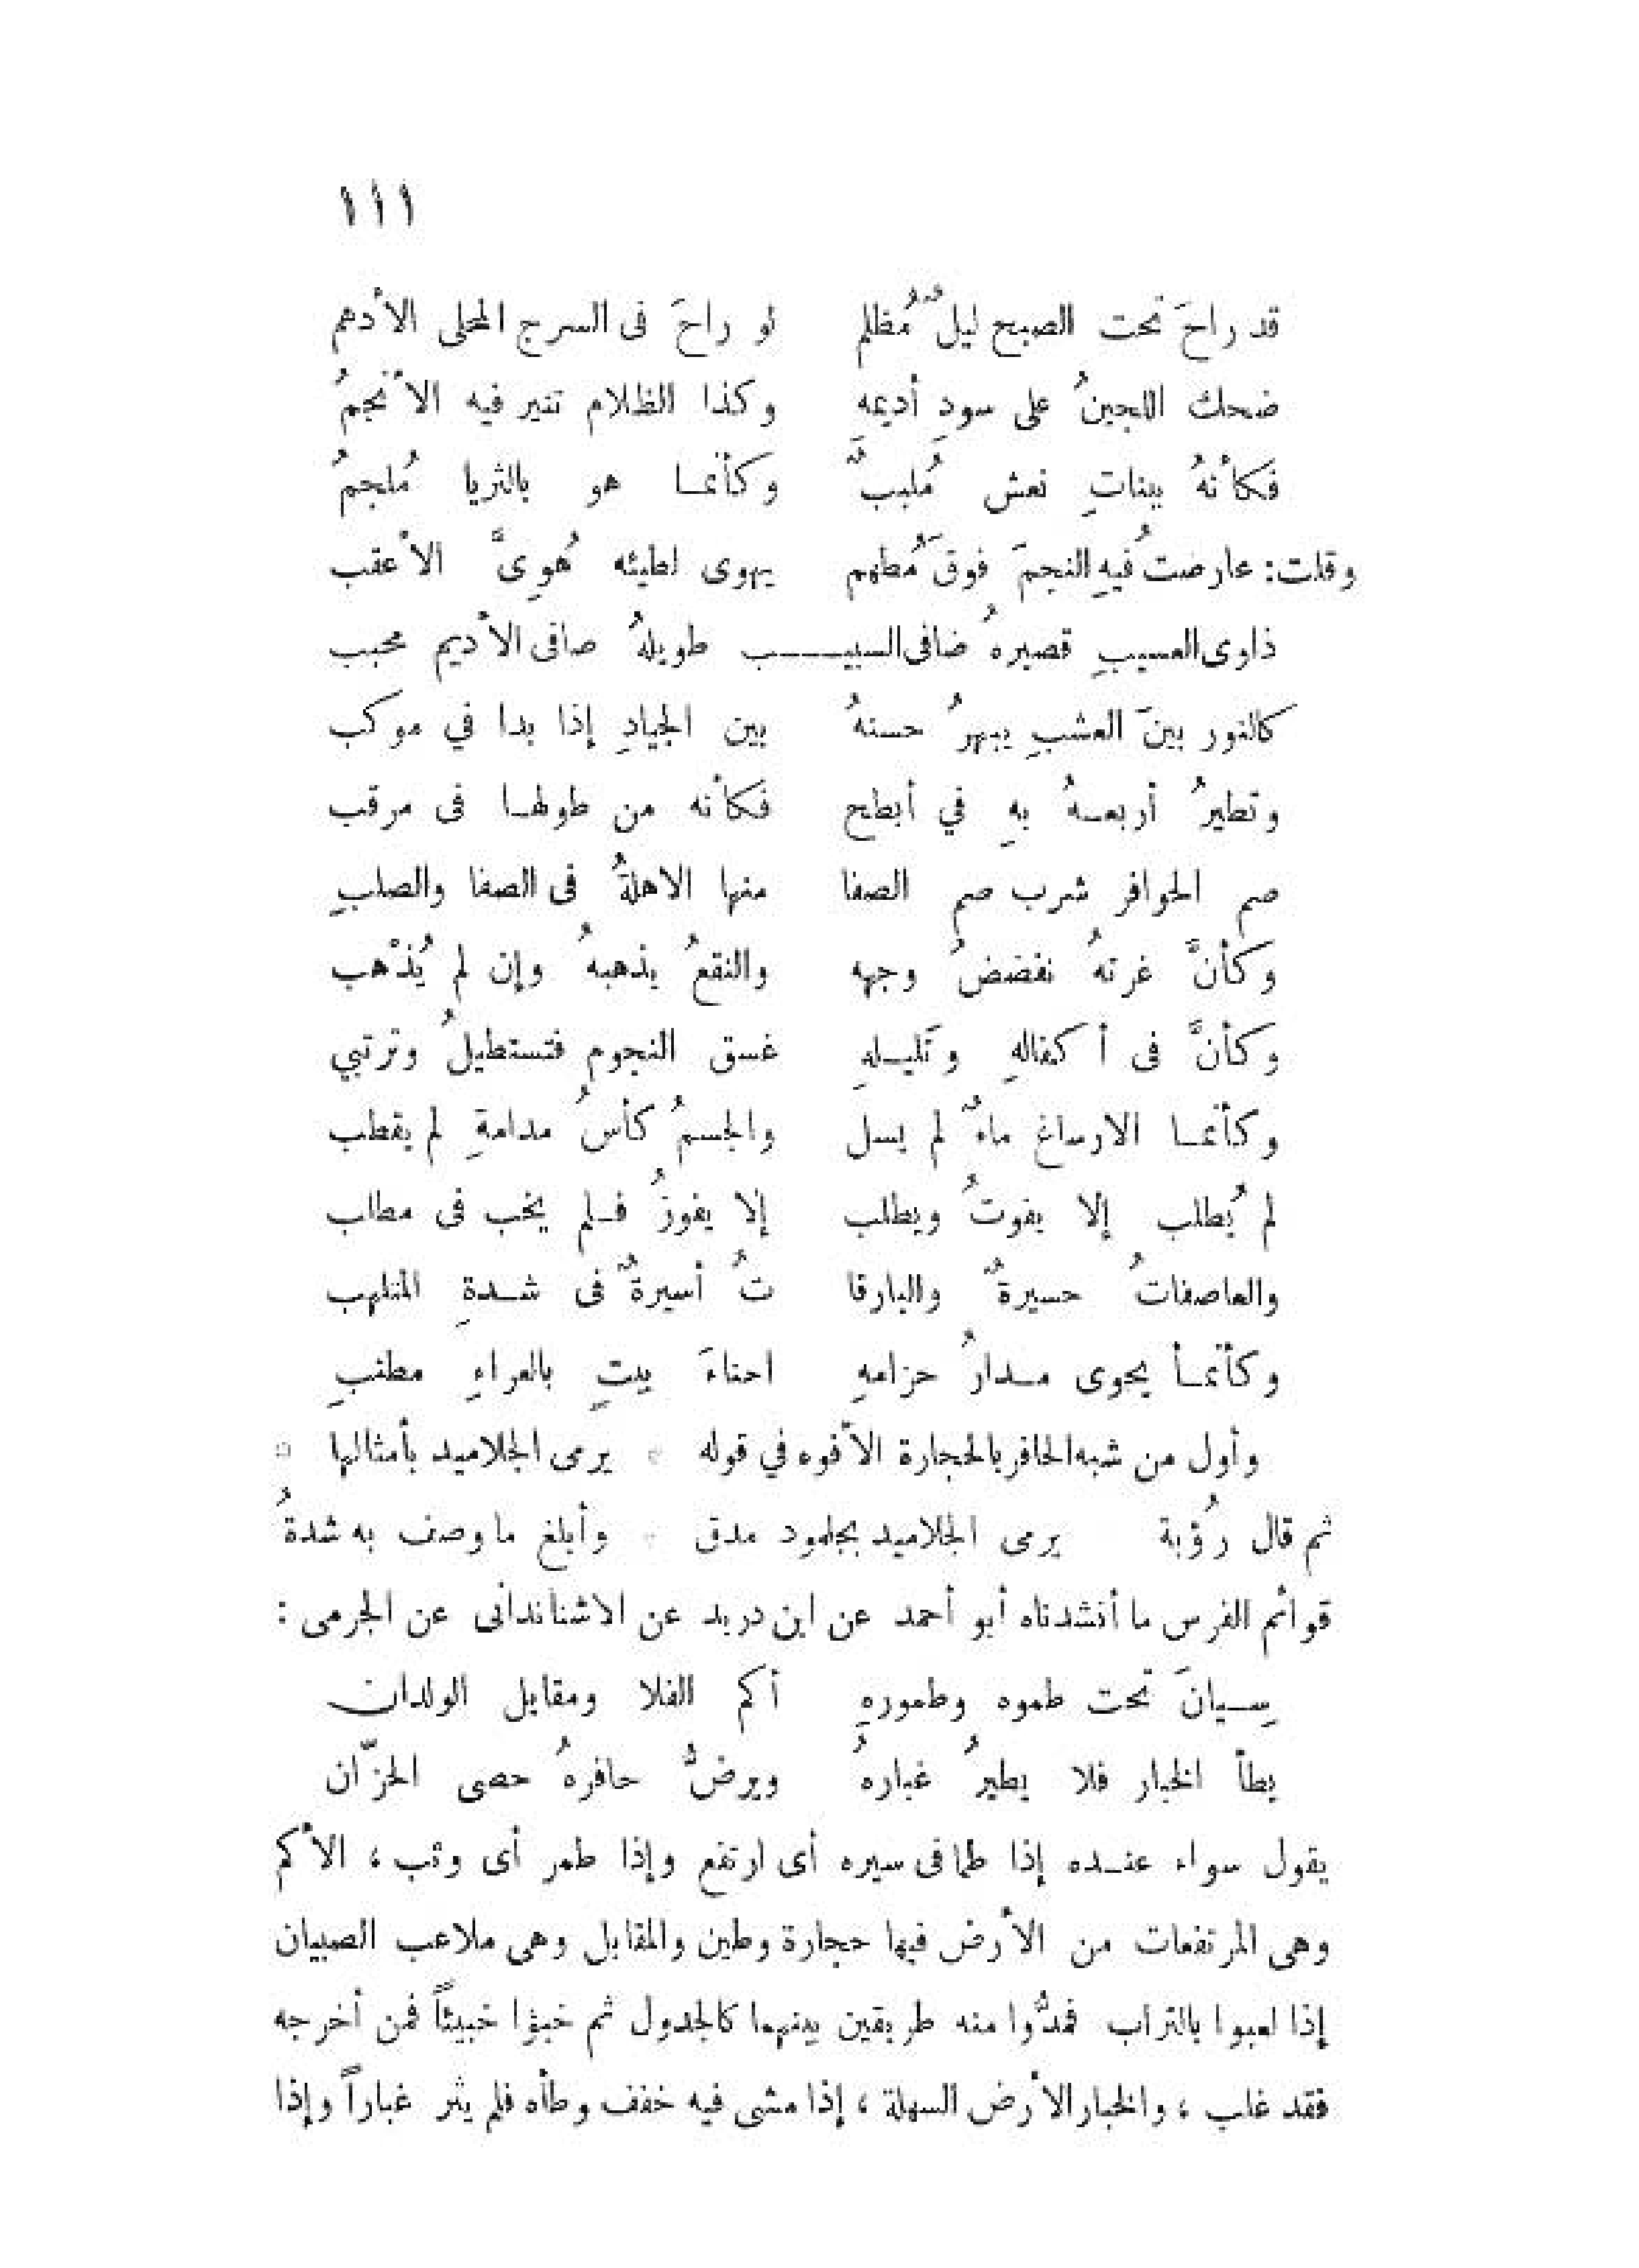 ١١١
قد راحَ تحت الصبح ليلٌ مُظلم لو راحَ فى السرج المحلى الأدهم
ضحك اللجينُ على سودِ أديمه وكذا الظلام تنير فيه الأنجمُ
فكأنهُ ببناتِ نعش مُلببٌ وكأنمـا هو بالثريا مُلجمُ
وقلت: عارضتُ فيهِ النجمَ فوقَ مُطهم يهوى لطيئه هُوِىَّ الأعقب
ذاوى العسيبِ قصيرهُ ضافى السبيــــب طويلهُ صافى الأديم محبب
كالنور بينَ العشبِ يبهرُ حسنهُ بين الجيادِ إذا بدا في موكب
وتطيرُ أربعـهُ بهِ في أبطح فكأنه من طولهـا فى مرقب
صم الحوافر شرب صم الصفا منها الاهلةُ فى الصفا والصلبِ
وكأنَّ غرتهُ تفضضُ وجهه والنقعُ يذهبهُ وإن لم يُذْهب
وكأنَّ فى أكفالهِ وتَليـلهِ غسق النجوم فتستطيلُ وترتبي
وكأنمـا الارساغ ماءٌ لم يسل والجسمُ كأسُ مدامةِ لم يقطب
لم يُطلب إلا يفوتُ ويطلب إلا يفوزُ فـلم يخب فى مطلب
والعاصفاتُ حسيرةٌ والبارقا تُ أسيرةٌ فى شـدةِ المتلهب
وكأنمـأ يحوى مـدارُ حزامهِ احناءَ بيتٍ بالعراءِ مطنبِ
وأول من شبه الحافر بالحجارة الأفوه في قوله * يرمى الجلاميد بأمثالها *
ثم قال رُؤبة يرمى الجلاميد بجلمود مدق * وأبلغ ما وصف به شدةُ
قوائم الفرس ما أنشدناه أبو أحمد عن ابن دريد عن الاشناندانى عن الجرمى :
سِـيانَ تحت طموه وطمورهِ أكم الفلا ومقابل الولدان
يطأ الخبار فلا يطيرُ غبارهُ ويرضُّ حافرهُ حصى الحزّان
يقول سواء عنـده إذا طما فى سيره أى ارتفع وإذا طمر أى وثب ، الأكم
وهى المرتفعات من الأرض فيها حجارة وطين والمقابل وهى ملاعب الصبيان
إذا لعبوا بالتراب فمدُّوا منه طريقين بينهما كالجدول ثم خبؤا خبيئاً فمن أخرجه
فقد غلب ، والخبار الأرض السهلة ، إذا مشى فيه خفف وطأه فلم يثر غباراً وإذا